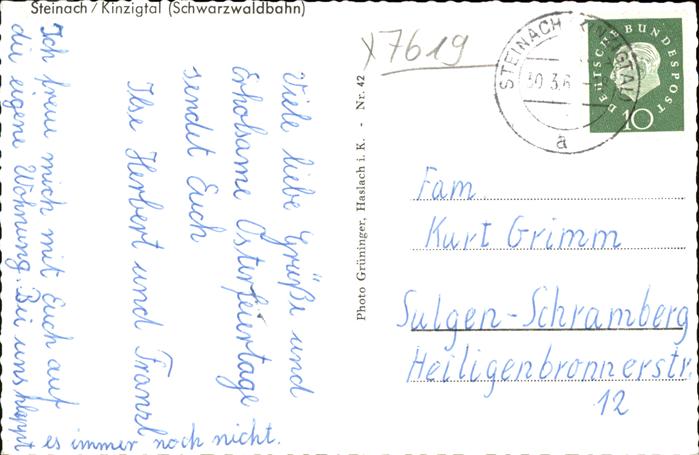 Steinach / Kinzigtal (Schwarzwaldbahn)
Viele liebe Grüße und
Erholsame Osterfeiertage
sendet Euch
Ilse Herbert und Franzl
Ich freue mich mit Euch auf
die eigene Wohnung. Bei uns klappt
es immer noch nicht.
Photo Grüninger, Haslach i. K. - Nr. 42
7619
STEINACH (KINZIGTAL)
30.3.6
a
DEUTSCHE BUNDESPOST
10
Fam.
Kurt Grimm
Sulgen-Schramberg
Heiligenbronnerstr.
12